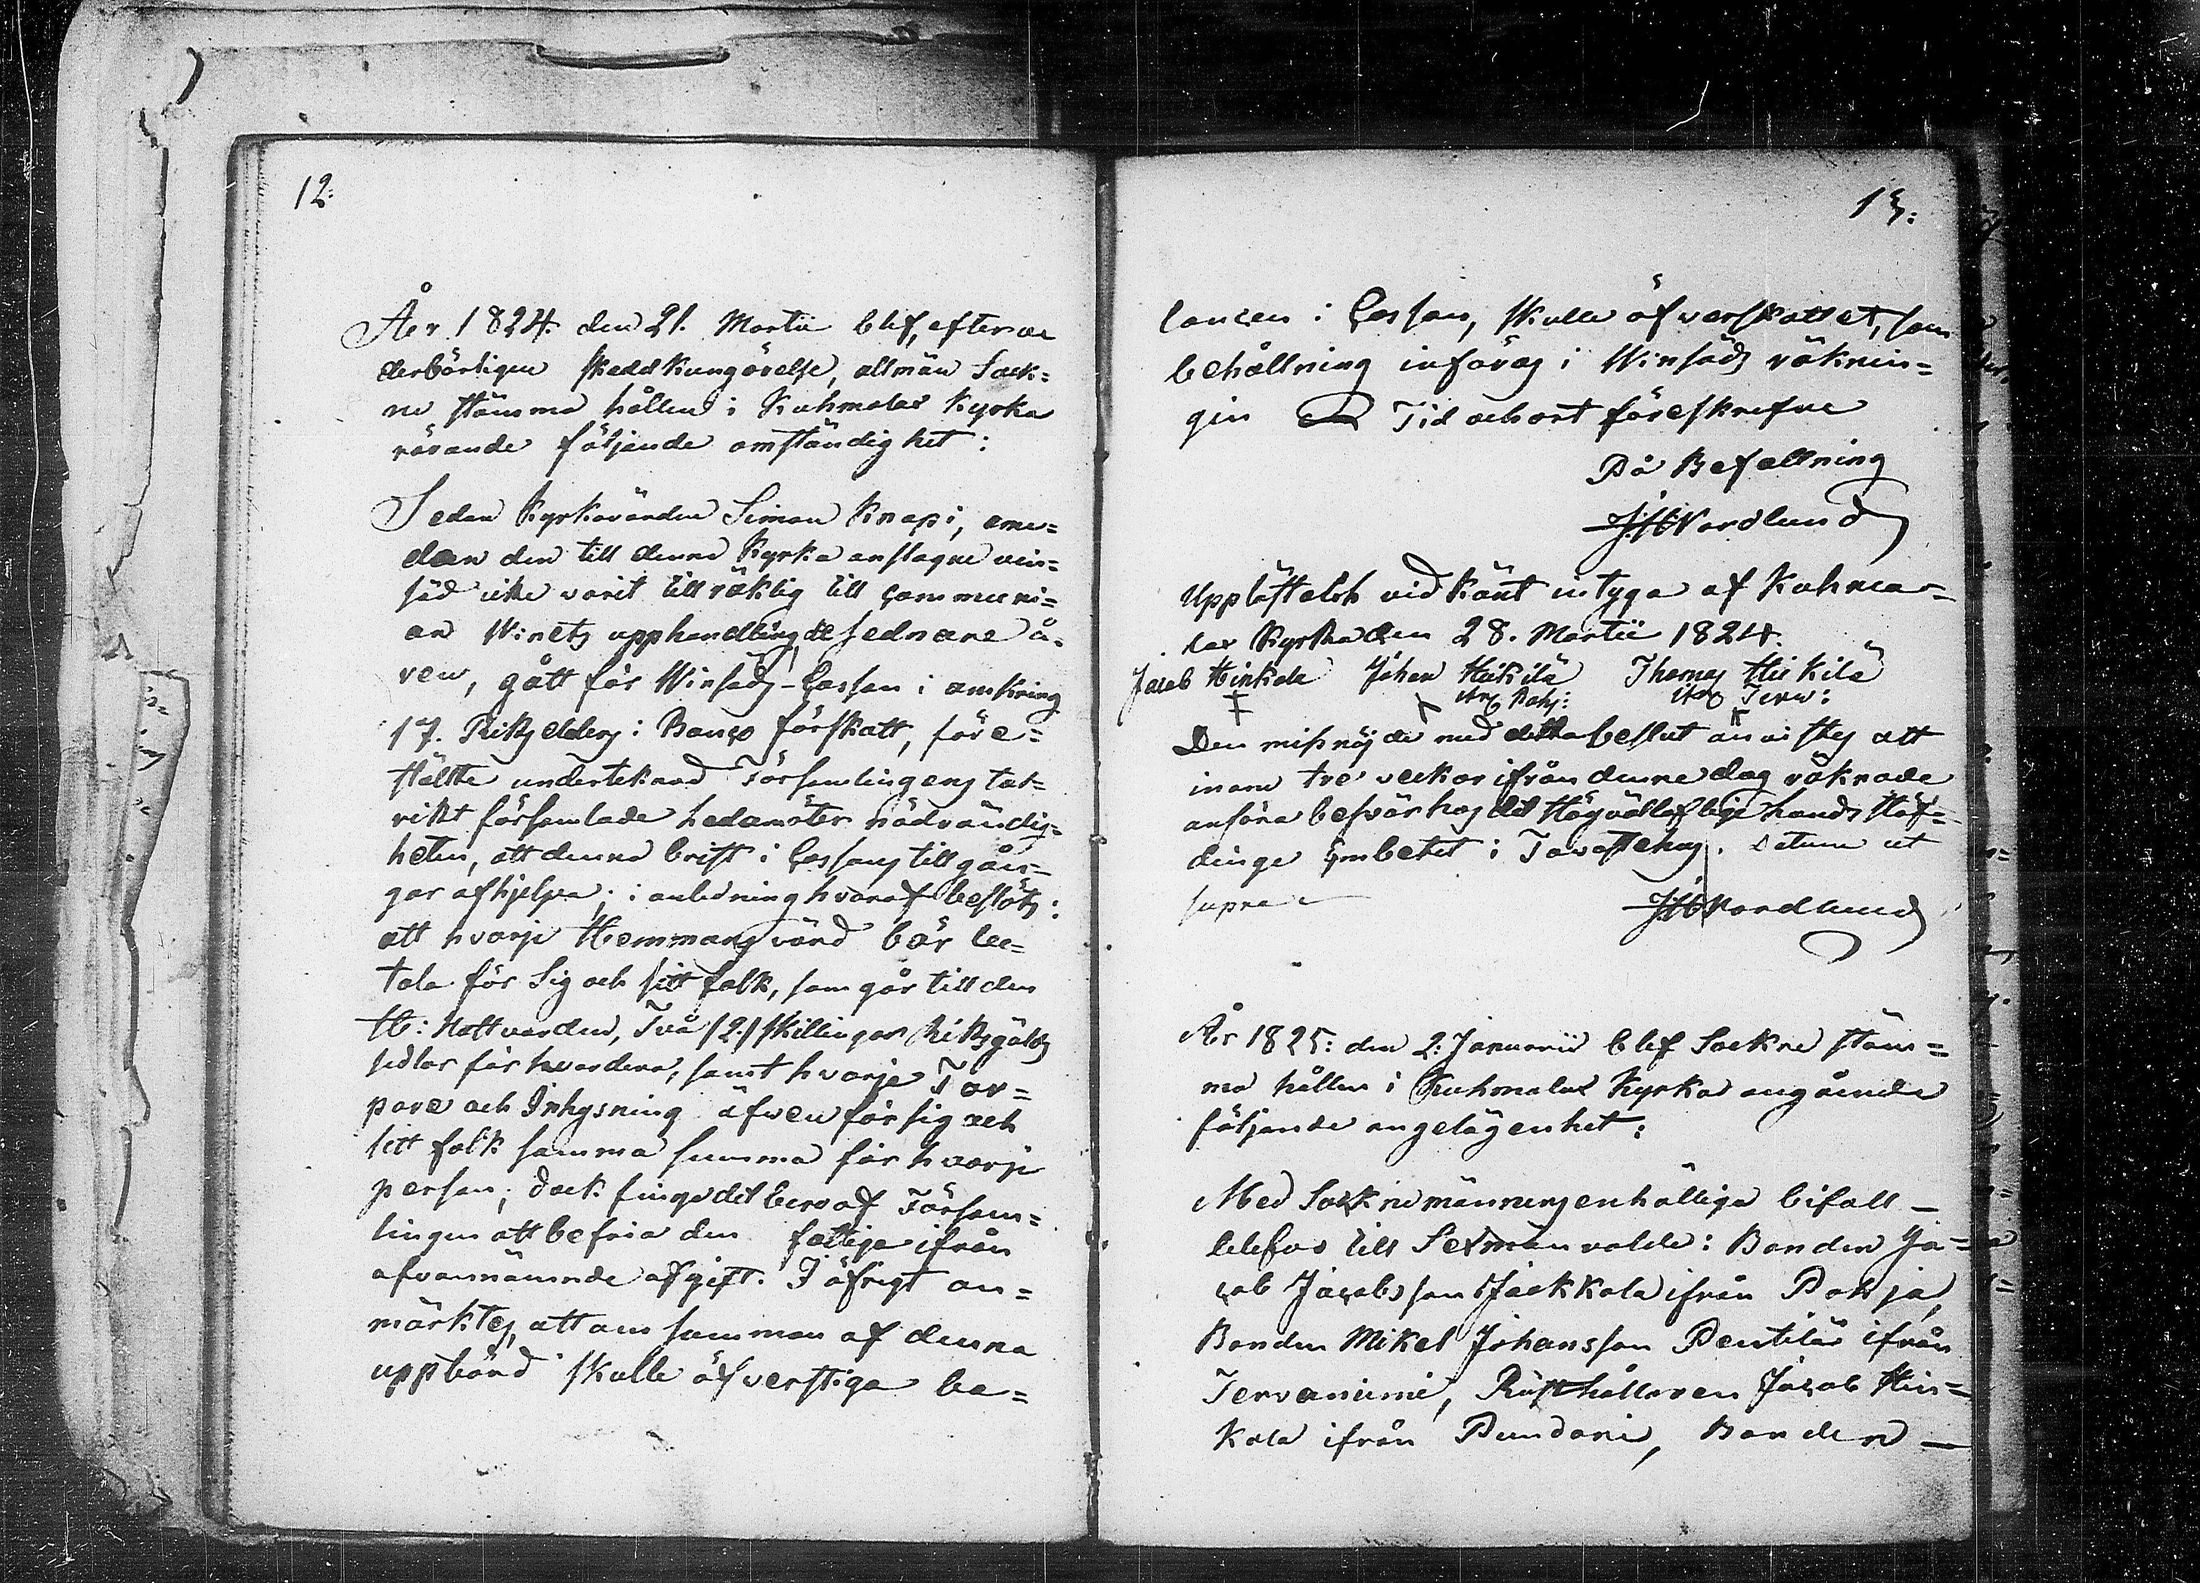 12.
År 1824. den 21. Martii blef, efter ve
derbörligen skedd Kungörelse, allmän Sock=
ne stämma hållen i Kuhmalax Kyrka
rörande följande omständighet:
Sedan Kyrkovärden Simon Knapi, eme=
dan den till denna Kyrka anslagne vin=
säd icke varit tillräklig till communi=
on Winets upphandling, de sednare å=
ren, gått för Winsäds-Cassan i omkring
17. Riksdalers: Banco förskott, före=
stälte undertecknad Församlingens tal=
rikt församlade ledamöter nödvändig=
heten, att denna brist i Cassans tillgån=
gar afhjelpa; i anledning hvaraf beslöts:
att hvarje Hemmans värd bör be=
tala för Sig och sitt folk, som går till den
H: Nattvarden, Två /2/ skillingar Riksgälds
sedlar för hvardera, samt hvarje Tor=
pare och Inhysning äfwen för sig och
sitt folk samma summa för hvarje
person; dock finge det bero af Försam=
lingen att befria den fattige ifrån
ofvannämnde afgift. I öfrigt an=
märktes, att om summan af denna
uppbörd skulle öfverstiga ba=
13:
lancen i Cassan, skulle öfverskottet, som
behållning införas i Winsäds räknin=
gen Tid och ort föreskrefne
På Befallning
JH Nordlund
Uppläst och vidkänt intyga af Kuhma=
lax Kyrka den 28. Martii 1824.
Jacob Hinkala Johan Heikilä Thomas Heikilä
ifrån Pohj: ifrån Terw:
Den missnöjde med detta beslut anvistes att
inom tre veckor ifrån denna dag räknade
anföra besvär hos det Högvällofliga Lands Höf=
dinge Embetet i Tavastehus. Datum ut
supra
JH Nordlund
År 1825: den 2: Januarii blef Sockne stäm=
ma hållen i Kuhmalax Kyrka angående
följande angelägenhet:
Med Sockne männernes enhälliga bifall
blefvo till Sexmän valde: Bonden Ja=
cob Jacobsson Jäckkola ifrån Pohja,
Bonden Mikel Johansson Pentilä ifrån
Tervaniemi, Rusthållaren Jacob Hin=
kala ifrån Pundari, Bonden